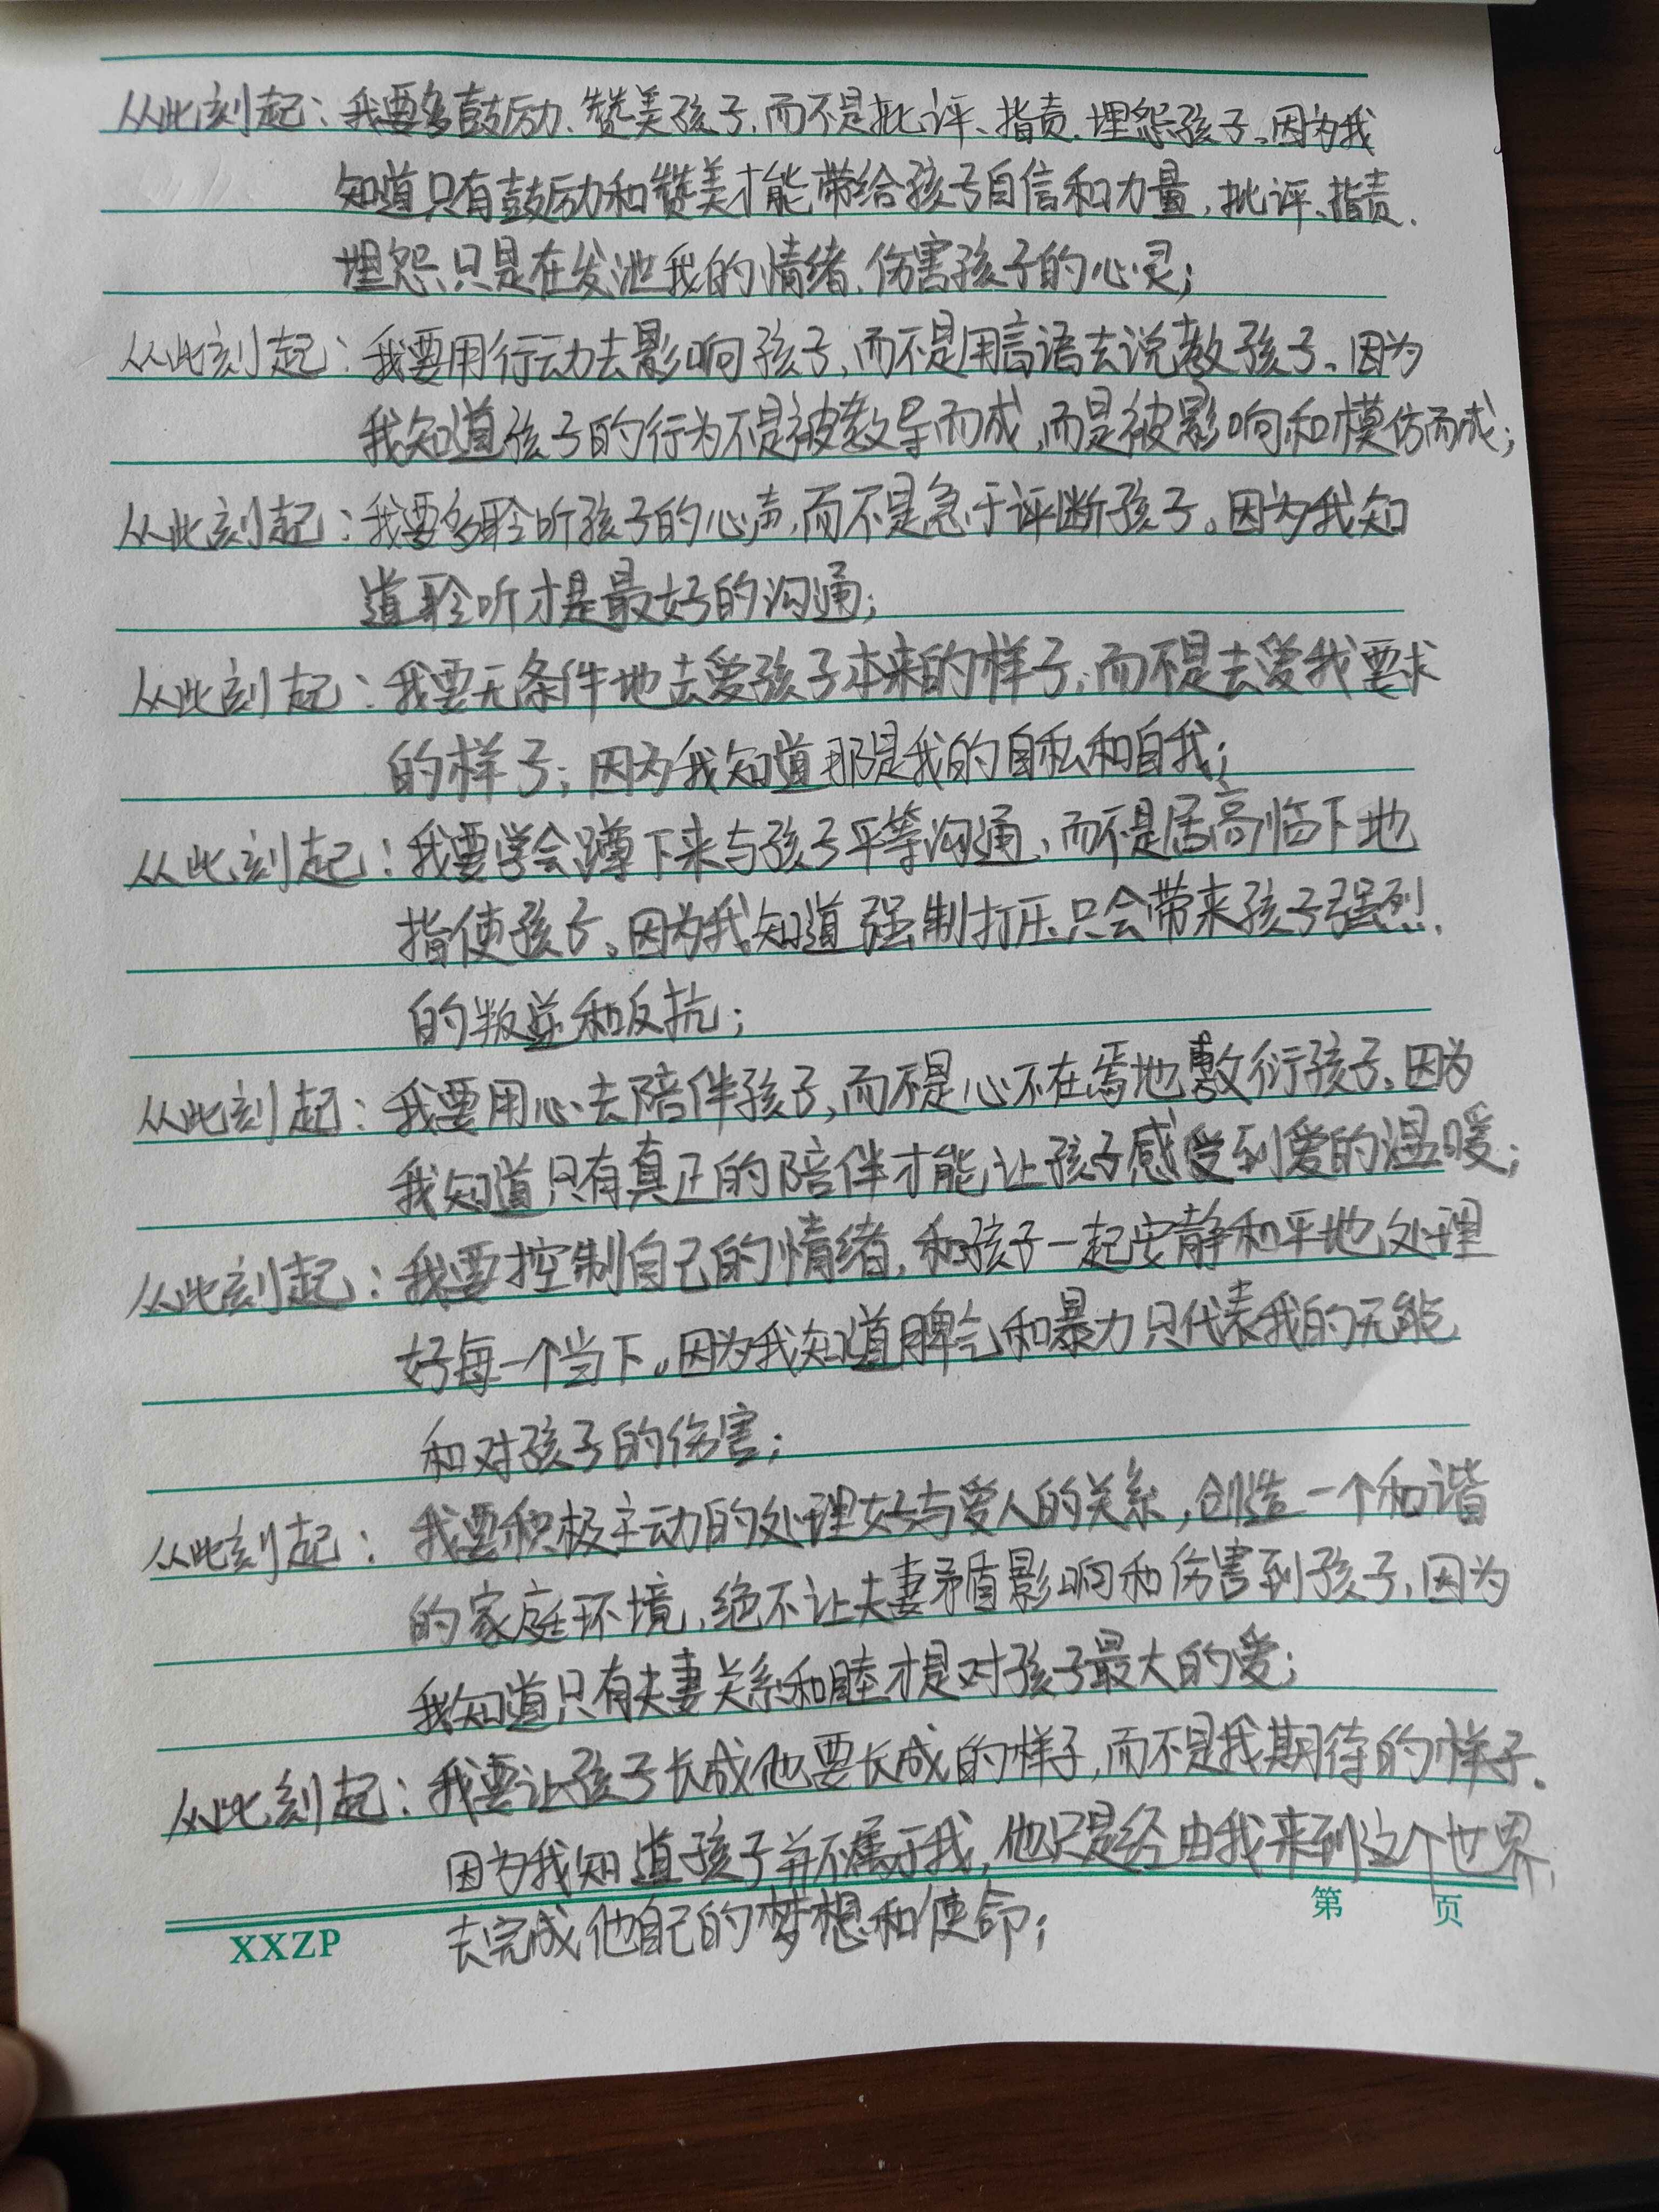 从此刻起：我要多鼓励、赞美孩子，而不是批评、指责、埋怨孩子。因为我
知道只有鼓励和赞美才能带给孩子自信和力量，批评、指责、
埋怨只是在发泄我的情绪、伤害孩子的心灵；
从此刻起：我要用行动去影响孩子，而不是用言语去说教孩子。因为
我知道孩子的行为不是被教导而成，而是被影响和模仿而成；
从此刻起：我要多聆听孩子的心声，而不是急于评断孩子。因为我知
道聆听才是最好的沟通；
从此刻起：我要无条件地去爱孩子本来的样子，而不是去爱我要求
的样子；因为我知道那是我的自私和自我；
从此刻起：我要学会蹲下来与孩子平等沟通，而不是居高临下地
指使孩子。因为我知道强制打压只会带来孩子强烈
的叛逆和反抗；
从此刻起：我要用心去陪伴孩子，而不是心不在焉地敷衍孩子。因为
我知道只有真正的陪伴才能让孩子感受到爱的温暖；
从此刻起：我要控制自己的情绪，和孩子一起安静和平地处理
好每一个当下。因为我知道脾气和暴力只代表我的无能
和对孩子的伤害；
从此刻起：我要积极主动的处理好与爱人的关系，创造一个和谐
的家庭环境，绝不让夫妻矛盾影响和伤害到孩子，因为
我知道只有夫妻关系和睦才是对孩子最大的爱；
从此刻起：我要让孩子长成他要长成的样子，而不是我期待的样子。
因为我知道孩子并不属于我，他只是经由我来到这个世界，
去完成他自己的梦想和使命；
第 页
XXZP